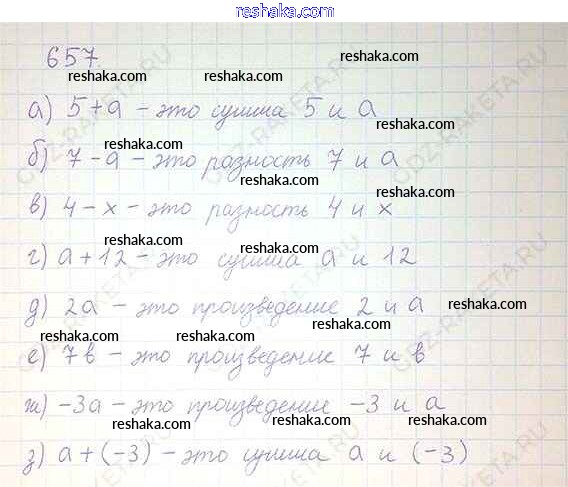 reshaka.com
657.
reshaka.com
reshaka.com reshaka.com reshaka.com
а) 5+а – это сумма 5 и а
reshaka.com
reshaka.com
б) 7–а – это разность 7 и а
reshaka.com
reshaka.com
в) 4–x – это разность 4 и x
reshaka.com
reshaka.com
г) а+12 – это сумма а и 12
reshaka.com
д) 2а – это произведение 2 и а
reshaka.com
reshaka.com
reshaka.com
reshaka.com
е) 7в – это произведение 7 и в
ж) –3а – это произведение –3 и а
reshaka.com
reshaka.com
з) а+(–3) – это сумма а и (–3)
reshaka.com
reshaka.com
GDZ-RAKETA.RU